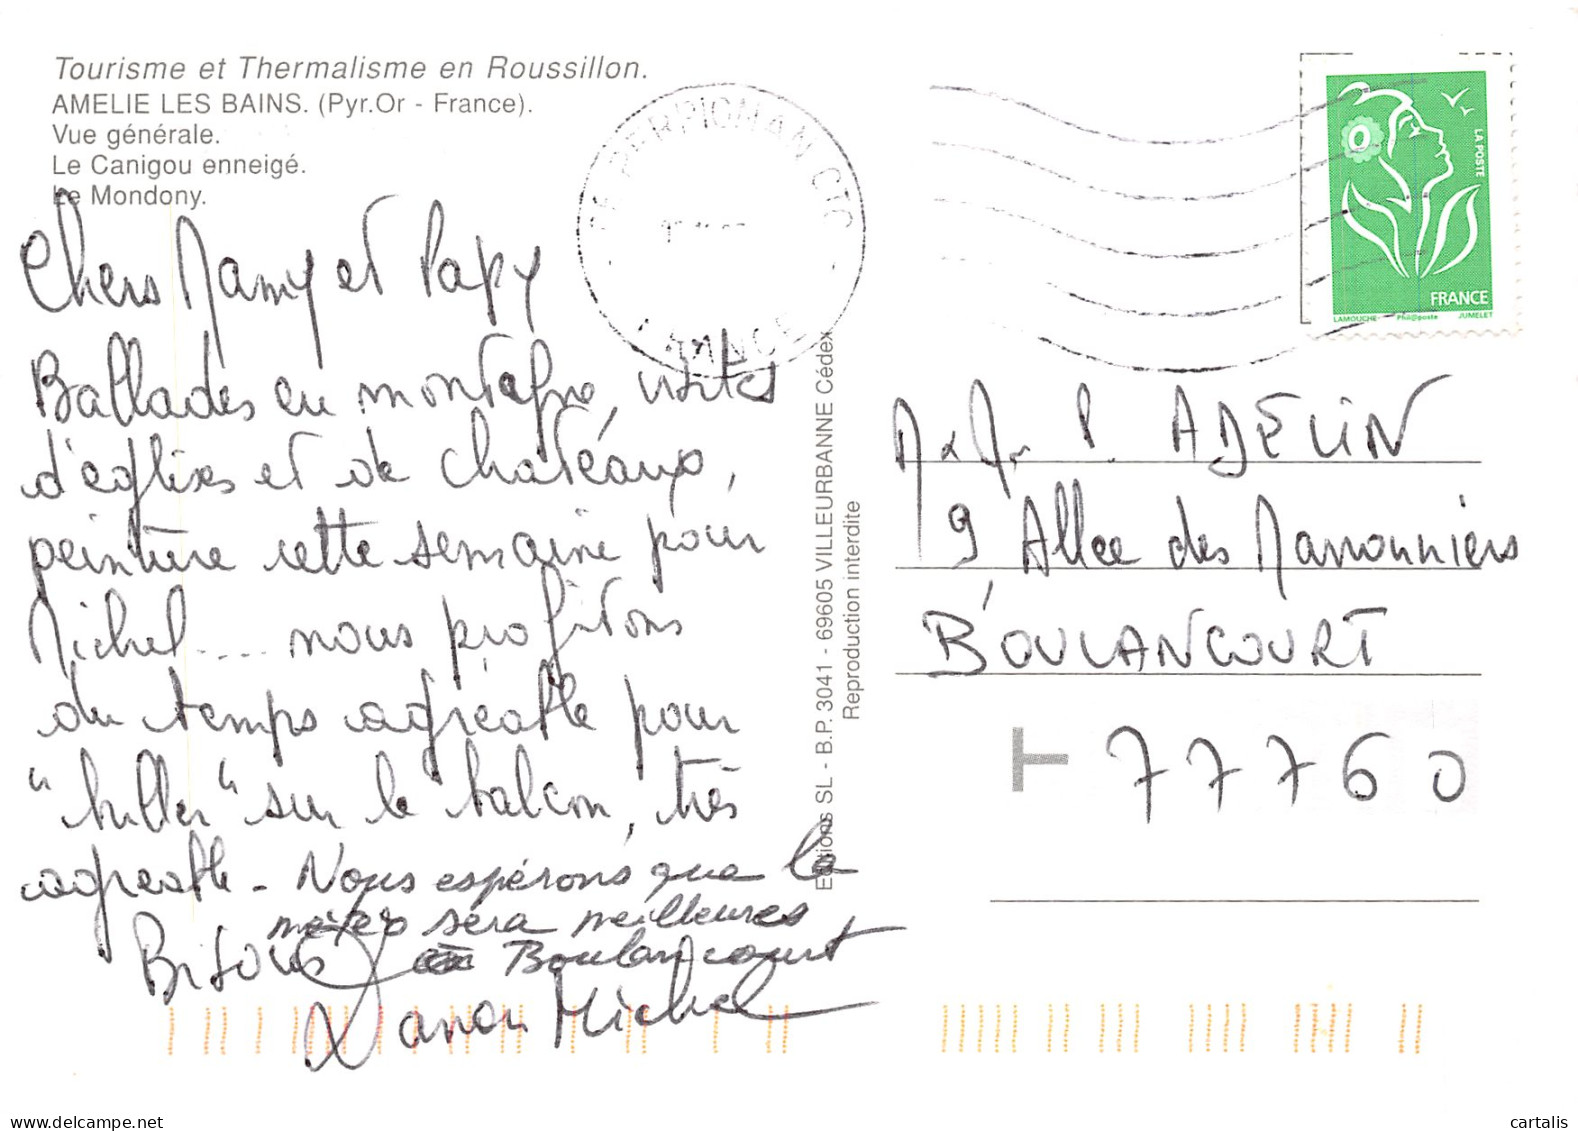 Tourisme et Thermalisme en Roussillon.
AMELIE LES BAINS. (Pyr.Or - France).
Vue générale.
Le Canigou enneigé.
Le Mondony.
Chers Mamy et Papy
Ballades en montagne, visites
d'églises et de chateaux,
peinture cette semaine pour
Michel.... nous profitons
du temps agréable pour
"buller" sur le balcon, très
agréable - Nous espérons que la
météo sera meilleures
Bisous à Boulancourt
Manon Michel
PERPIGNAN CTC
FRANCE
Editions SL - B.P. 3041 - 69605 VILLEURBANNE Cédex
Reproduction interdite
LA POSTE
FRANCE
LAMOUCHE Phil@poste JUMELET
M & Mr P. ADELIN
9 Allee des Marronniers
BOULANCOURT
T 77760
cartalis
www.delcampe.net